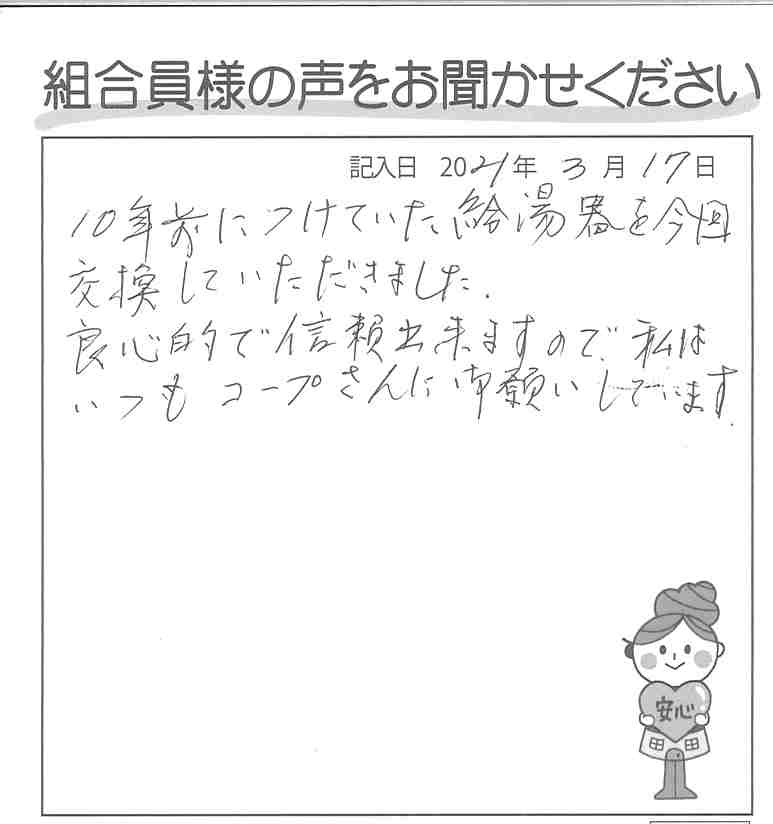 組合員様の声をお聞かせください
記入日 2021年 3月 17日
10年前につけていた給湯器を今回
交換していただきました.
良心的で信頼出来ますので、私は
いつもコープさんに御願いしています.
安心